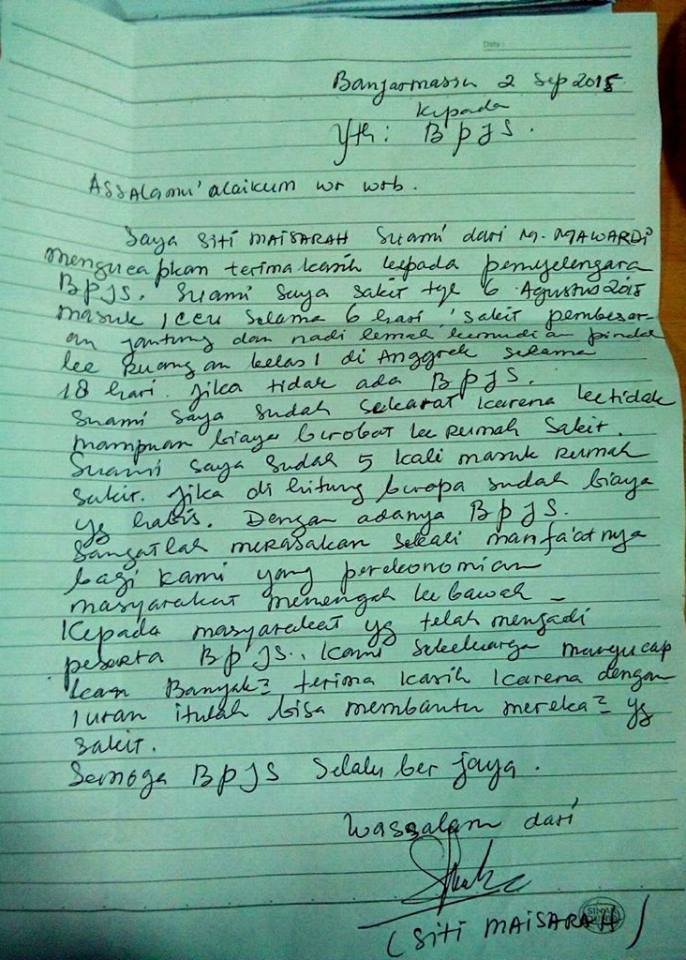 Date :
Banjarmasin 2 Sep 2015
Kepada
Yth : BPJS.
Assalamu'alaikum wr wrb.
Saya SITI MAISARAH Suami dari M. MAWARDI
mengucapkan terima kasih kepada penyelengara
BPJS. Suami Saya sakit tgl 6 Agustus 2015
masuk ICCU Selama 6 hari, sakit pembesar-
an jantung dan nadi lemah kemudian pindah
ke Ruangan kelas 1 di Anggrek selama
18 hari. Jika tidak ada BPJS.
Suami Saya sudah sekarat karena ketidak
mampuan biaya berobat ke Rumah Sakit.
Suami saya sudah 5 kali masuk Rumah
sakit. Jika di hitung berapa sudah biaya
yg habis. Dengan adanya BPJS.
Sangatlah merasakan sekali manfa'atnya
bagi kami yang perekonomian
masyarakat menengah ke bawah -
Kepada masyarakat yg telah mengadi
peserta BPJS. Kami sekeluarga mangucap
kan Banyak2 terima kasih karena dengan
iuran itulah bisa membantu mereka2 yg
sakit.
Semoga BPJS Selalu ber jaya.
Wassalam dari
(SITI MAISARAH)